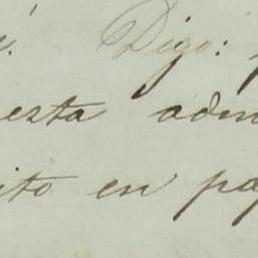 Digo:
esta adm
ito en pa